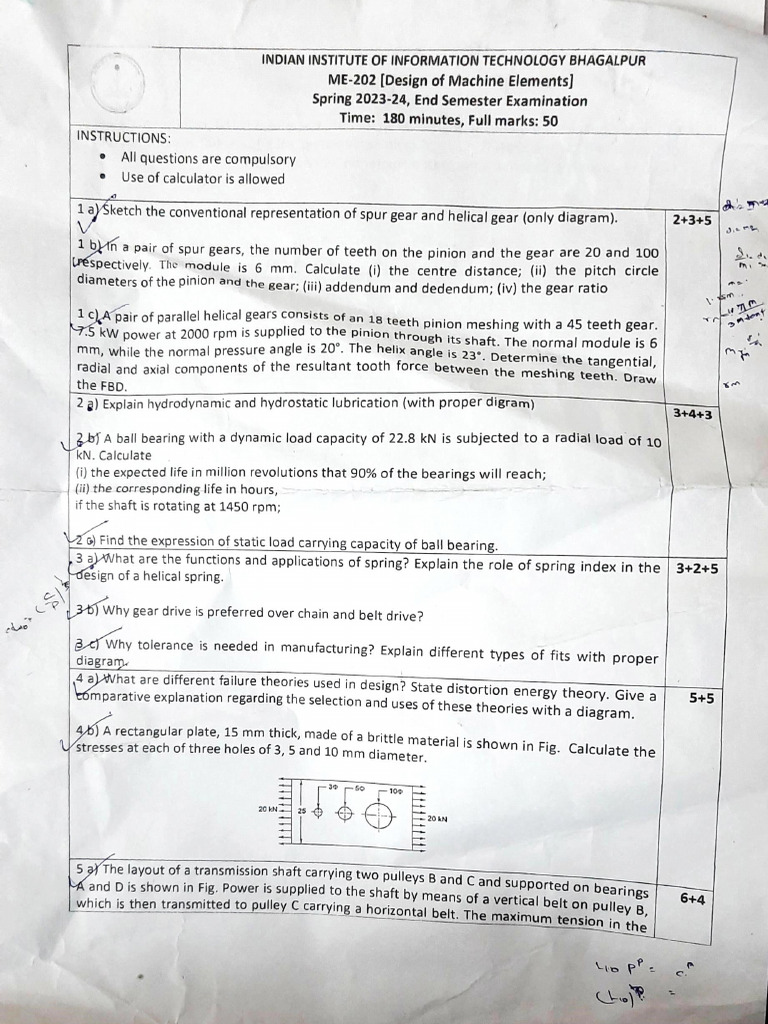 INDIAN INSTITUTE OF INFORMATION TECHNOLOGY BHAGALPUR
ME-202 [Design of Machine Elements]
Spring 2023-24, End Semester Examination
Time: 180 minutes, Full marks: 50
INSTRUCTIONS:
• All questions are compulsory
• Use of calculator is allowed
1 a) Sketch the conventional representation of spur gear and helical gear (only diagram).
2+3+5
1 b) In a pair of spur gears, the number of teeth on the pinion and the gear are 20 and 100
respectively. The module is 6 mm. Calculate (i) the centre distance; (ii) the pitch circle
diameters of the pinion and the gear; (iii) addendum and dedendum; (iv) the gear ratio
1 c) A pair of parallel helical gears consists of an 18 teeth pinion meshing with a 45 teeth gear.
7.5 kW power at 2000 rpm is supplied to the pinion through its shaft. The normal module is 6
mm, while the normal pressure angle is 20°. The helix angle is 23°. Determine the tangential,
radial and axial components of the resultant tooth force between the meshing teeth. Draw
the FBD.
2 a) Explain hydrodynamic and hydrostatic lubrication (with proper digram)
3+4+3
2 b) A ball bearing with a dynamic load capacity of 22.8 kN is subjected to a radial load of 10
kN. Calculate
(i) the expected life in million revolutions that 90% of the bearings will reach;
(ii) the corresponding life in hours,
if the shaft is rotating at 1450 rpm;
2 c) Find the expression of static load carrying capacity of ball bearing.
3 a) What are the functions and applications of spring? Explain the role of spring index in the
design of a helical spring.
3+2+5
3 b) Why gear drive is preferred over chain and belt drive?
3 c) Why tolerance is needed in manufacturing? Explain different types of fits with proper
diagram.
4 a) What are different failure theories used in design? State distortion energy theory. Give a
comparative explanation regarding the selection and uses of these theories with a diagram.
5+5
4 b) A rectangular plate, 15 mm thick, made of a brittle material is shown in Fig. Calculate the
stresses at each of three holes of 3, 5 and 10 mm diameter.
3Φ 5Φ 10Φ
20 kN 25
20 kN
5 a) The layout of a transmission shaft carrying two pulleys B and C and supported on bearings
A and D is shown in Fig. Power is supplied to the shaft by means of a vertical belt on pulley B,
which is then transmitted to pulley C carrying a horizontal belt. The maximum tension in the
6+4